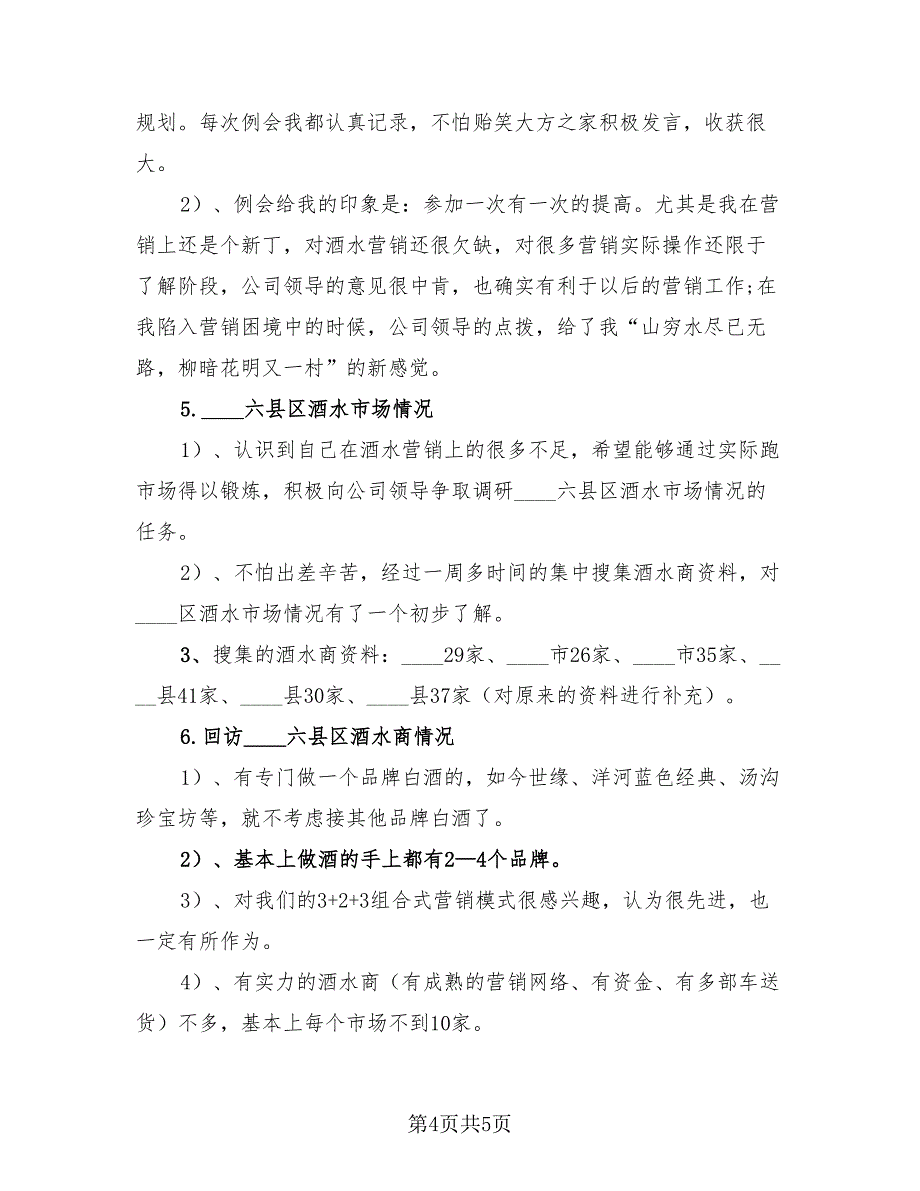 规划。每次例会我都认真记录，不怕贻笑大方之家积极发言，收获很
大。
2）、例会给我的印象是：参加一次有一次的提高。尤其是我在营
销上还是个新丁，对酒水营销还很欠缺，对很多营销实际操作还限于
了解阶段，公司领导的意见很中肯，也确实有利于以后的营销工作;在
我陷入营销困境中的时候，公司领导的点拨，给了我“山穷水尽已无
路，柳暗花明又一村”的新感觉。
5.____六县区酒水市场情况
1）、认识到自己在酒水营销上的很多不足，希望能够通过实际跑
市场得以锻炼，积极向公司领导争取调研____六县区酒水市场情况的
任务。
2）、不怕出差辛苦，经过一周多时间的集中搜集酒水商资料，对
____区酒水市场情况有了一个初步了解。
3、搜集的酒水商资料：____29家、____市26家、____市35家、__
__县41家、____县30家、____县37家（对原来的资料进行补充）。
6.回访____六县区酒水商情况
1）、有专门做一个品牌白酒的，如今世缘、洋河蓝色经典、汤沟
珍宝坊等，就不考虑接其他品牌白酒了。
2）、基本上做酒的手上都有2—4个品牌。
3）、对我们的3+2+3组合式营销模式很感兴趣，认为很先进，也
一定有所作为。
4）、有实力的酒水商（有成熟的营销网络、有资金、有多部车送
货）不多，基本上每个市场不到10家。
第4页共5页